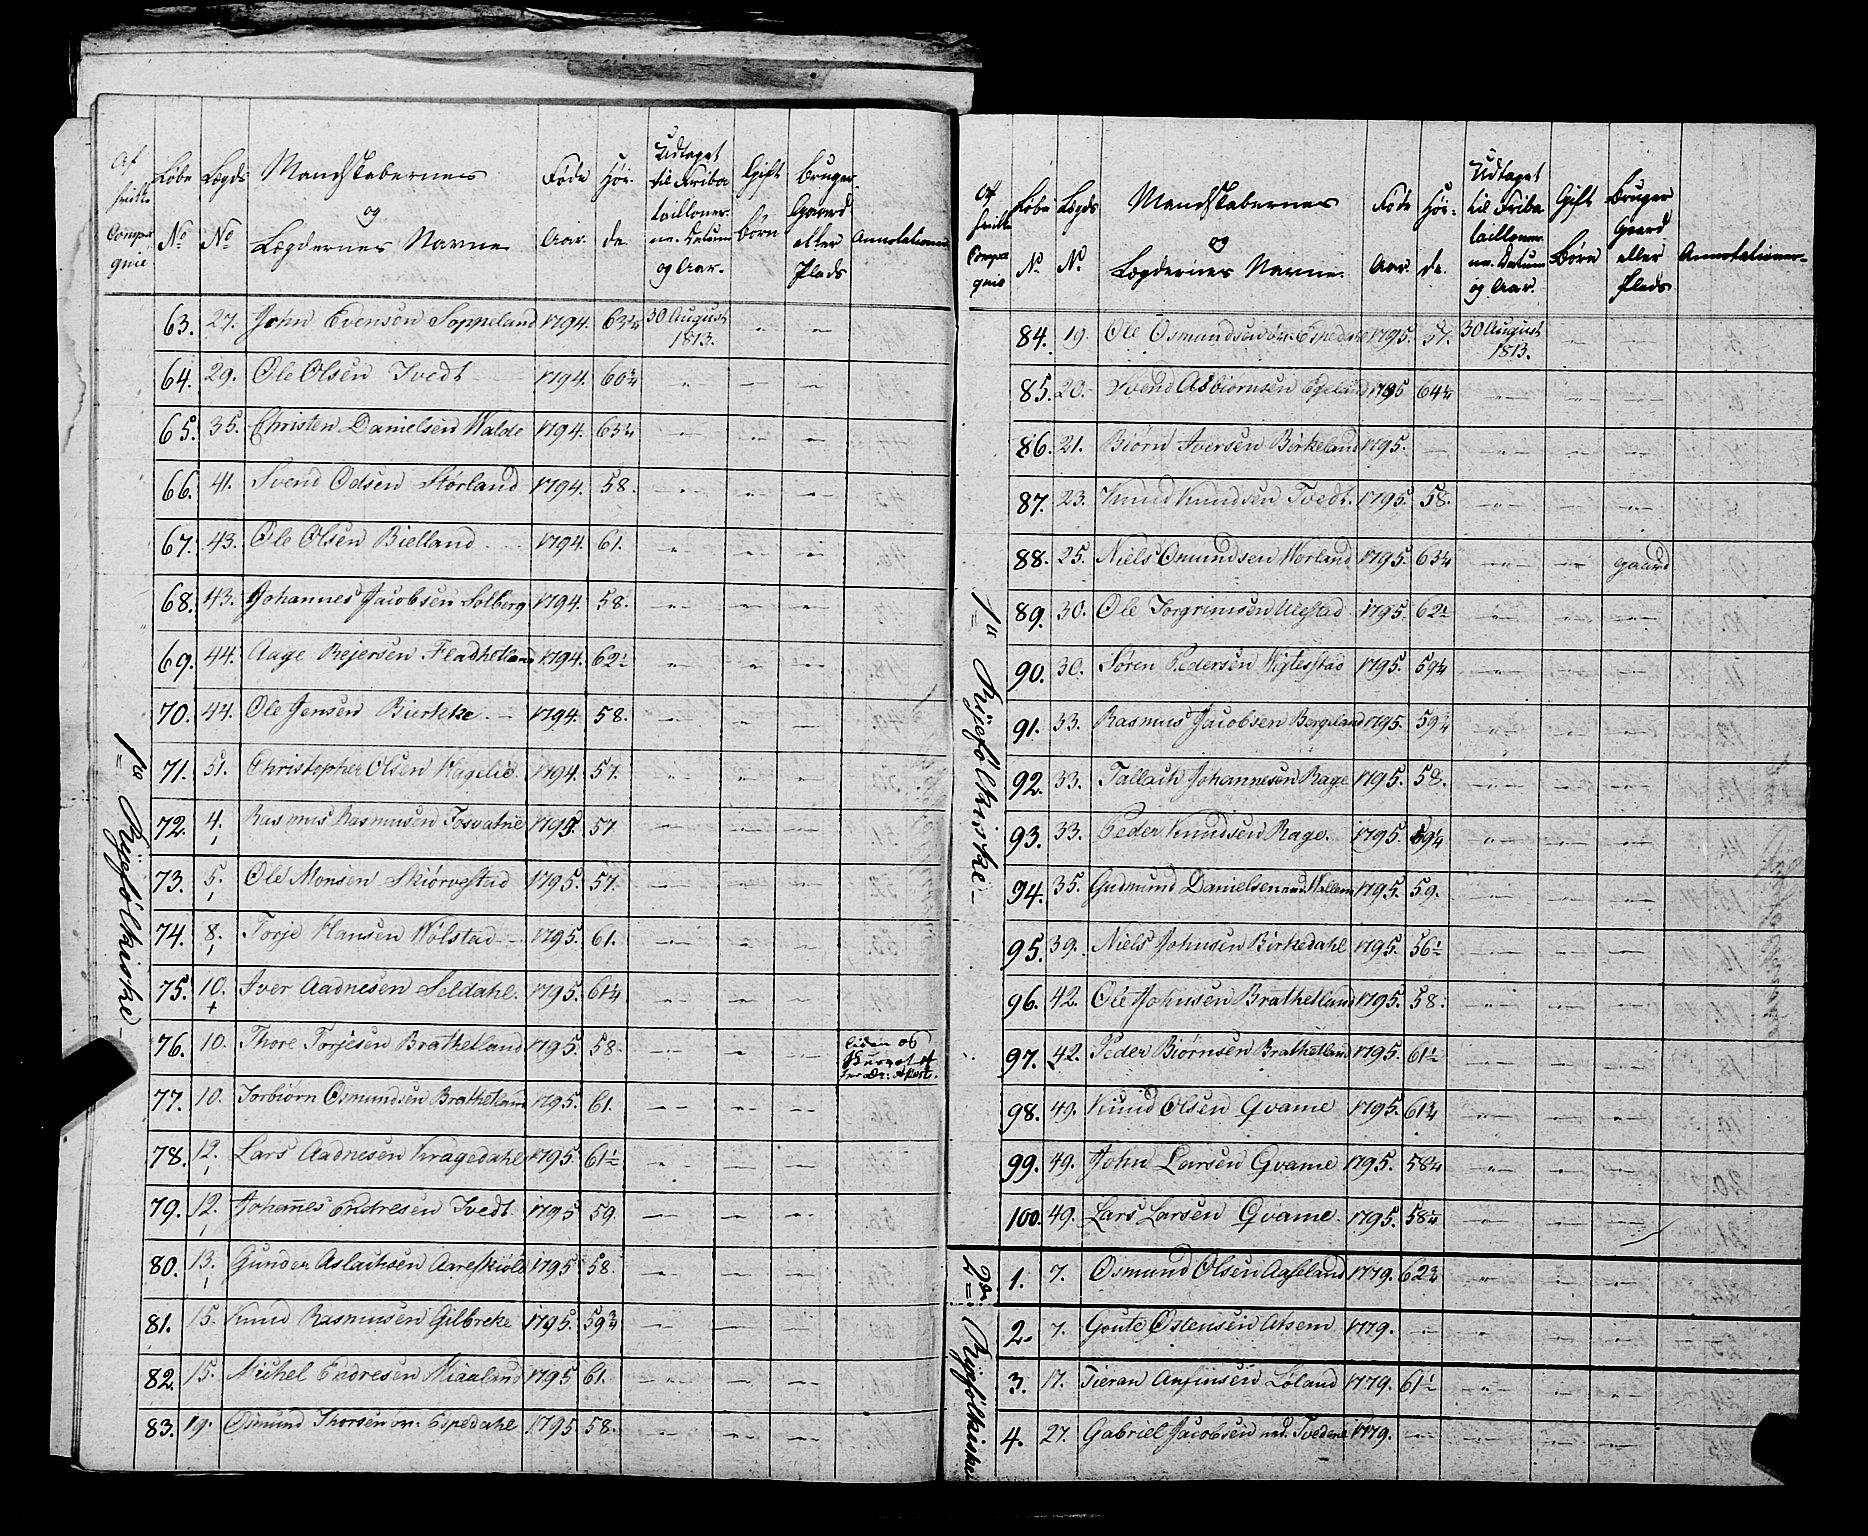 Af hvilke Compagnie | Løbe No | Lægds No | Mandskabernes og Lægdernes Navne | Føde Aar. | Høide. | Udtaget til Fribataillonerne. Datum og Aar. | Gift Børn | Bruger Gaard eller Plads | Annotationer
1te Ryefølkiske
63. 27. John Evensen Soppeland 1794. 63 3/4 30 August 1813. " "
64. 29. Ole Olsen Tvedt 1794. 60 3/4 " " "
65. 35. Christen Danielsen Walde 1794. 63 1/4 " " "
66. 41. Svend Odsen Størland 1794. 58. " " "
67. 43. Ole Olsen Bielland 1794. 61. " " "
68. 43. Johannes Jacobsen Solberg 1794. 58. " " "
69. 44. Aage Rejersen Fladhetland 1794. 62 1/2 " " "
70. 44. Ole Jensen Bierkke 1794. 58. " " "
71. 51. Christopher Olsen Hagelie 1794. 57. " " "
72. 4. Rasmus Rasmusen Fosvatne 1795. 57 " " "
73. 5. Ole Monsen Skiørvestad 1795. 57. " " "
74. 8. Torje Hansen Wølstad 1795. 61. " " "
75. 10. Iver Aadnesen Seldahl. 1795. 61 1/4 " " "
76. 10. Thore Torjesen Brathetland 1795. 58 " " " liden og
77. 10. Torbiørn Osmundsen Brathetland 1795. 61. " " "
78. 12. Lars Aadnesen Kragedahl 1795. 61 1/2 " " "
79. 12. Johannes Endresen Tvedt 1795 59. " " "
80. 13. Gunder Aslachsen Aareskiold 1795 58. " " "
81. 15. Knud Rasmusen Gilbreke 1795. 59 3/4 " " "
82. 15. Michel Endresen Miaaland 1795 61. " " "
83. 19. Osmund Thorsen øv: Espedahl 1795 58. " " "
Af hvilke Compagnie | Løbe No. | Lægds No. | Mandskabernes og Lægdernes Navne. | Føde Aar. | Høide. | Udtaget til Fribataillonerne. Datum og Aar. | Gift Børn | Bruger Gaard eller Plads | Annotationer
1te Ryefølkiske
84. 19. Ole Osmundsen øv: Espedahl 1795. 57. 30 August 1813. " "
85. 20. Svend Asbiørnsen Egeland 1795 64 1/4 " " "
86. 21. Biørn Iversen Birkeland 1795. " " " "
87. 23. Knud Knudsen Tvedt. 1795. 58. " " "
88. 25. Niels Omundsen Worland 1795. 63 1/4 " " gaard
89. 30. Ole Torgrimsen Ulestad 1795. 62 1/2 " " "
90. 30. Søren Pedersen Wigtesstad 1795. 59 1/4 " " "
91. 33. Rasmus Jacobsen Bergeland 1795. 59 3/4 " " "
92. 33. Tallach Johannesen Rage 1795. 58. " " "
93. 33. Peder Knudsen Rage. 1795. 59 1/4 " " "
94. 35. Gudmund Danielsen 1795. 59. " " "
95. 39. Niels Johnsen Birkedahl 1795. 56 1/2 " " "
96. 42. Ole Johnsen Brathetland 1795. 58. " " "
97. 42. Peder Biørnsen Brathetland 1795. 61 1/2 " " "
98. 49. Knud Olsen Qvame 1795. 61 3/4 " " "
99. 49. John Larsen Qvame 1795. 58 1/4 " " "
100. 49. Lars Larsen Qvame. 1795. 58 1/4 " " "
2den Ryefølkiske
1. 7. Osmund Olsen Aaseland 1779. 62 3/4 " " "
2. 7. Goute Østensen 1779. " " " "
3. 17. Tieran Anfinsen Løland 1779. 61 1/2 " " "
4. 27. Gabriel Jacobsen ned. Tvedene 1779. " " " "